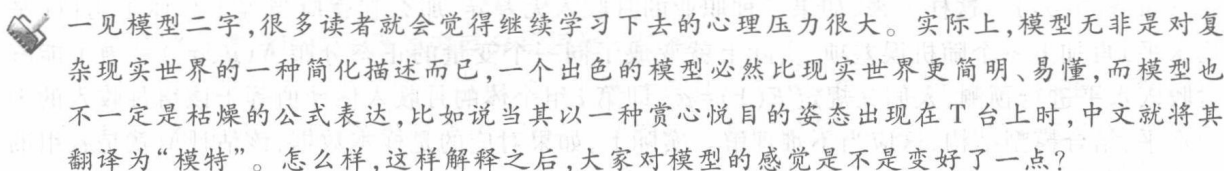 一见模型二字,很多读者就会觉得继续学习下去的心理压力很大。实际上,模型无非是对复
杂现实世界的一种简化描述而已,一个出色的模型必然比现实世界更简明、易懂,而模型也
不一定是枯燥的公式表达,比如说当其以一种赏心悦目的姿态出现在 T 台上时,中文就将其
翻译为“模特”。怎么样,这样解释之后,大家对模型的感觉是不是变好了一点?